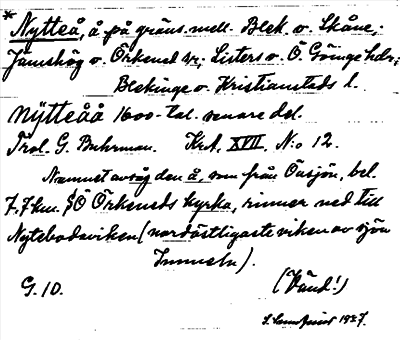 * Nytteå, å på gräns. mell. Blek. o. Skåne;
Jämshög o. Örkened sn; Listers o. Ö. Göinge hdr;
Blekinge o. Kristianstads l.
nÿtteåå 1600-tal. senare del.
Trol. G. Buhrman. Krt. XVIII, N:o 12.
Namnet avsåg den å, som från Öasjön, bel.
7,7 km. SÖ Örkeneds kyrka, rinner ned till
Nytebodaviken (nordöstligaste viken av sjön
Immeln).
G. 10. (Vänd!)
1927.